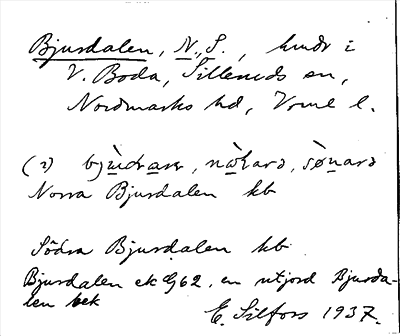 Bjursdalen, N., S., hmdr i
V. Boda, Silleruds sn,
Nordmarks hd, Vrml l.
(2) bjùdrarer, nòrarə, sø̀narə
Norra Bjursdalen kb
Södra Bjursdalen kb
Bjursdalen ek G62, en utjord Bjursda-
len bek
E. Silfors 1937.